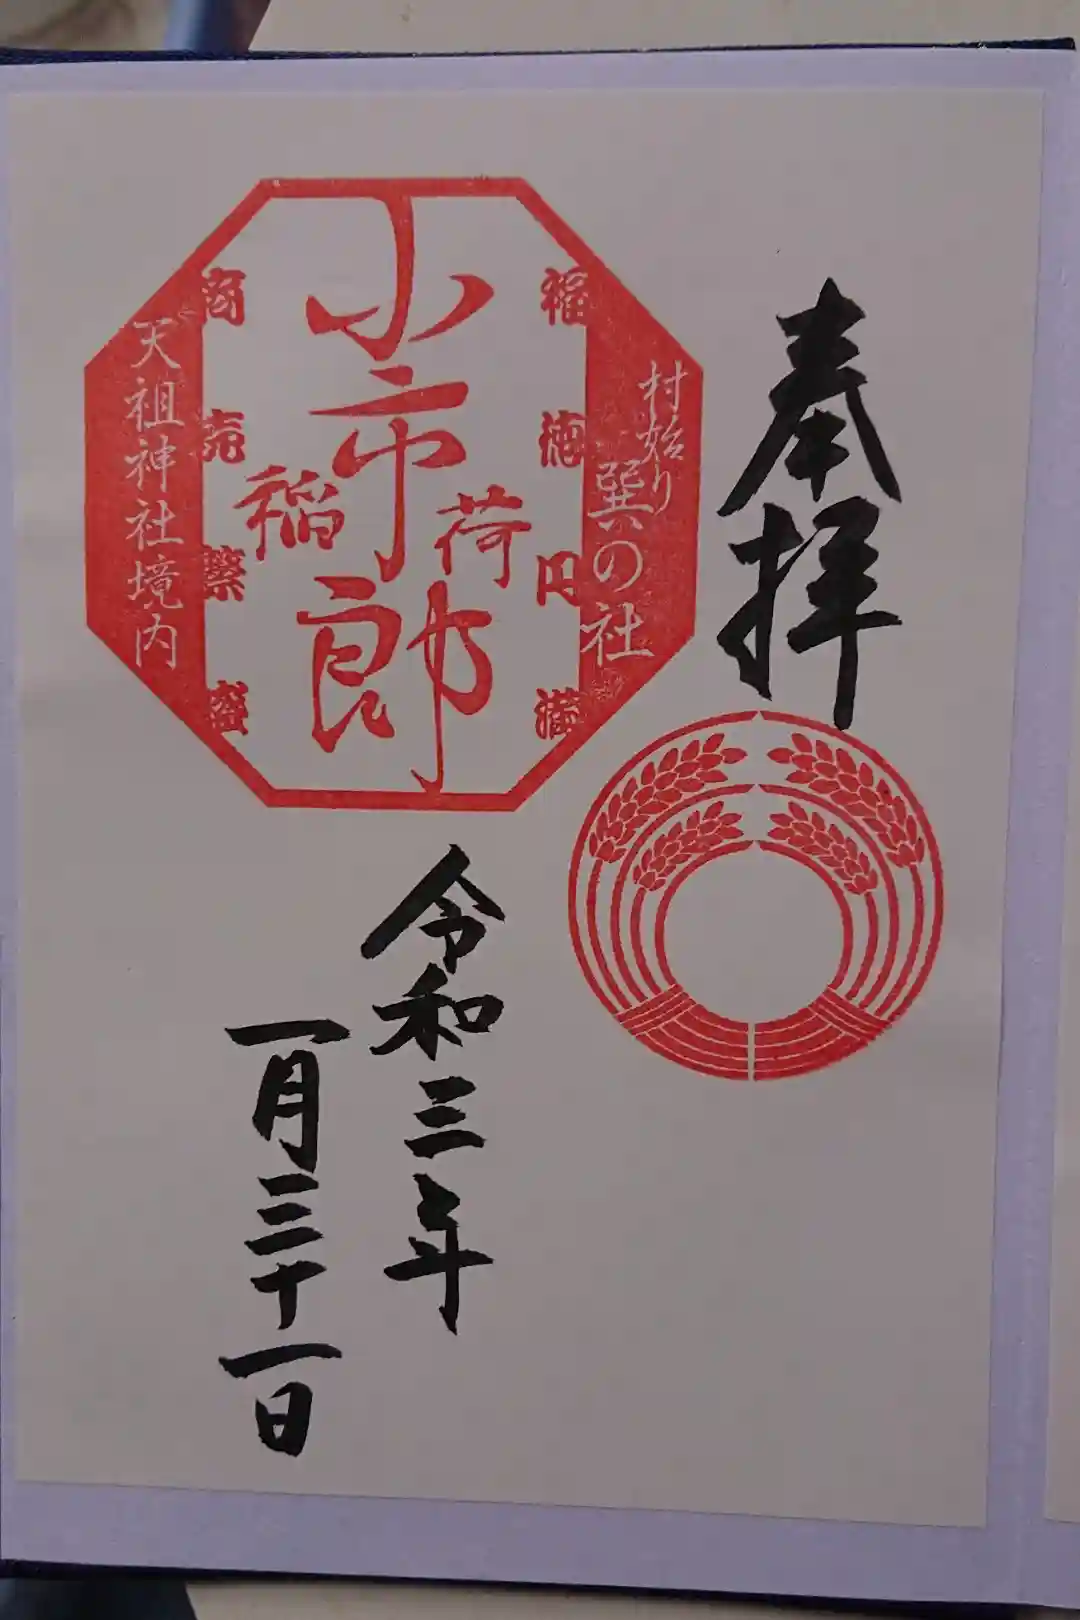 奉拝
村始り
巽の社
福徳円満
小市郎
稲荷
商売繁盛
天祖神社境内
令和三年
一月三十一日